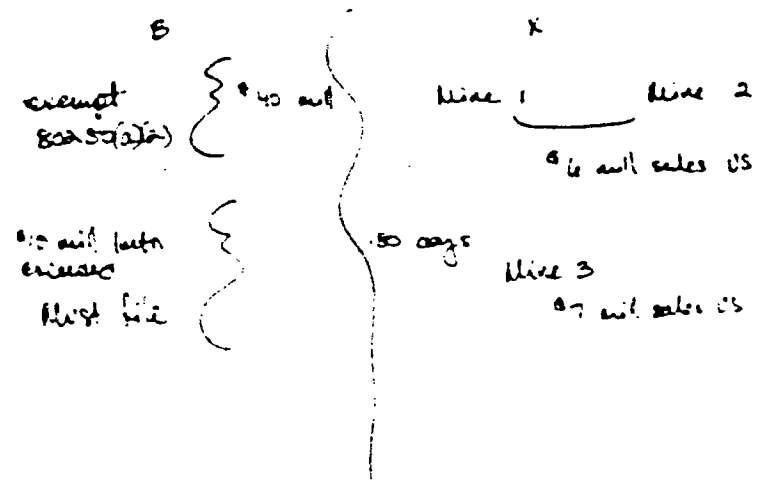 B
X
exempt
802.50(a)(2)
$40 mill
Mine 1
Mine 2
$6 mill sales US
$10 mill
exceeded
Must file
days
Mine 3
$7 mill sales US